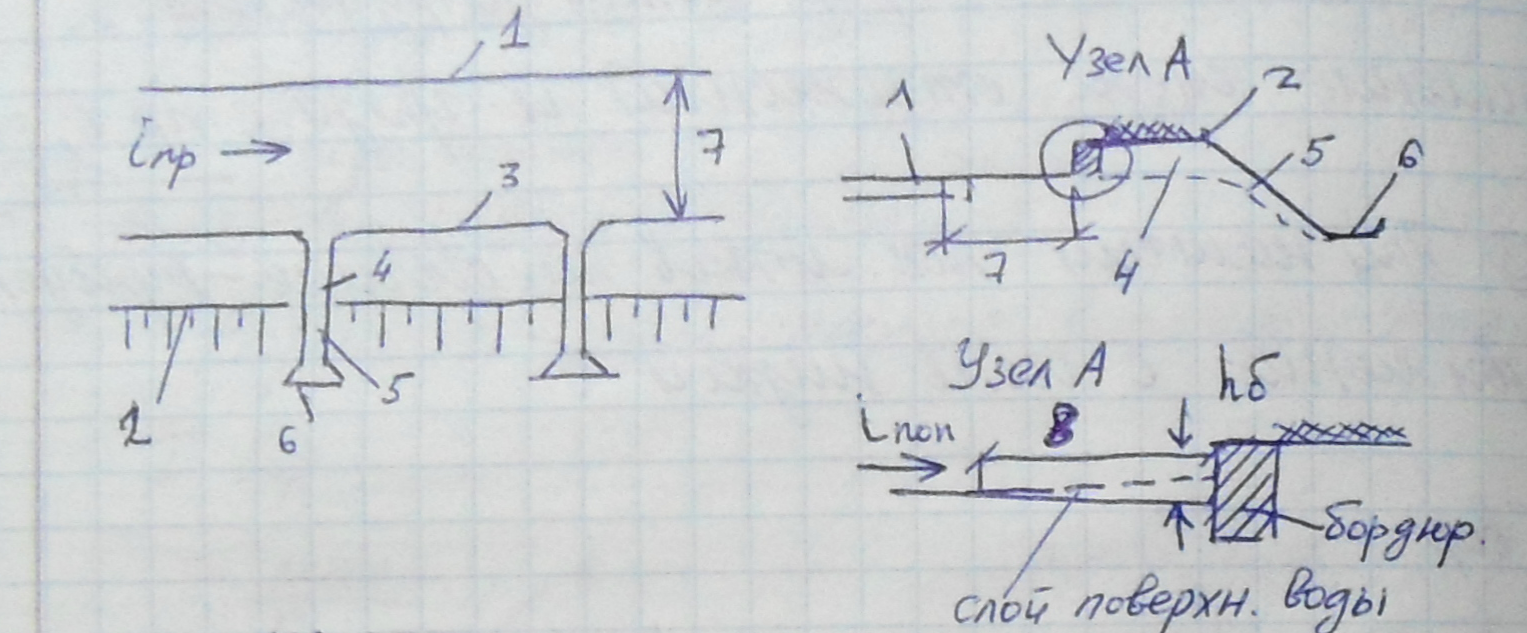 1
iпр
7
3
4
2
5
6
Узел А
1
2
5
6
7
4
Узел А
hб
iпоп
8
бордюр.
слой поверхн. воды